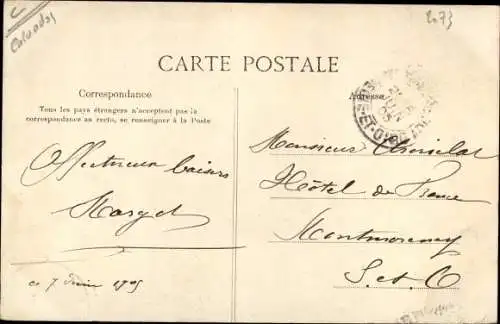 C
Calvados
2073
CARTE POSTALE
Correspondance
Tous les pays étrangers n'acceptent pas la
correspondance au recto, se renseigner à la Poste
Adresse
Affectueux baisers
Margot
ce 7 Juin 1905
Monsieur
Hôtel de France
Montmorency
S. et O